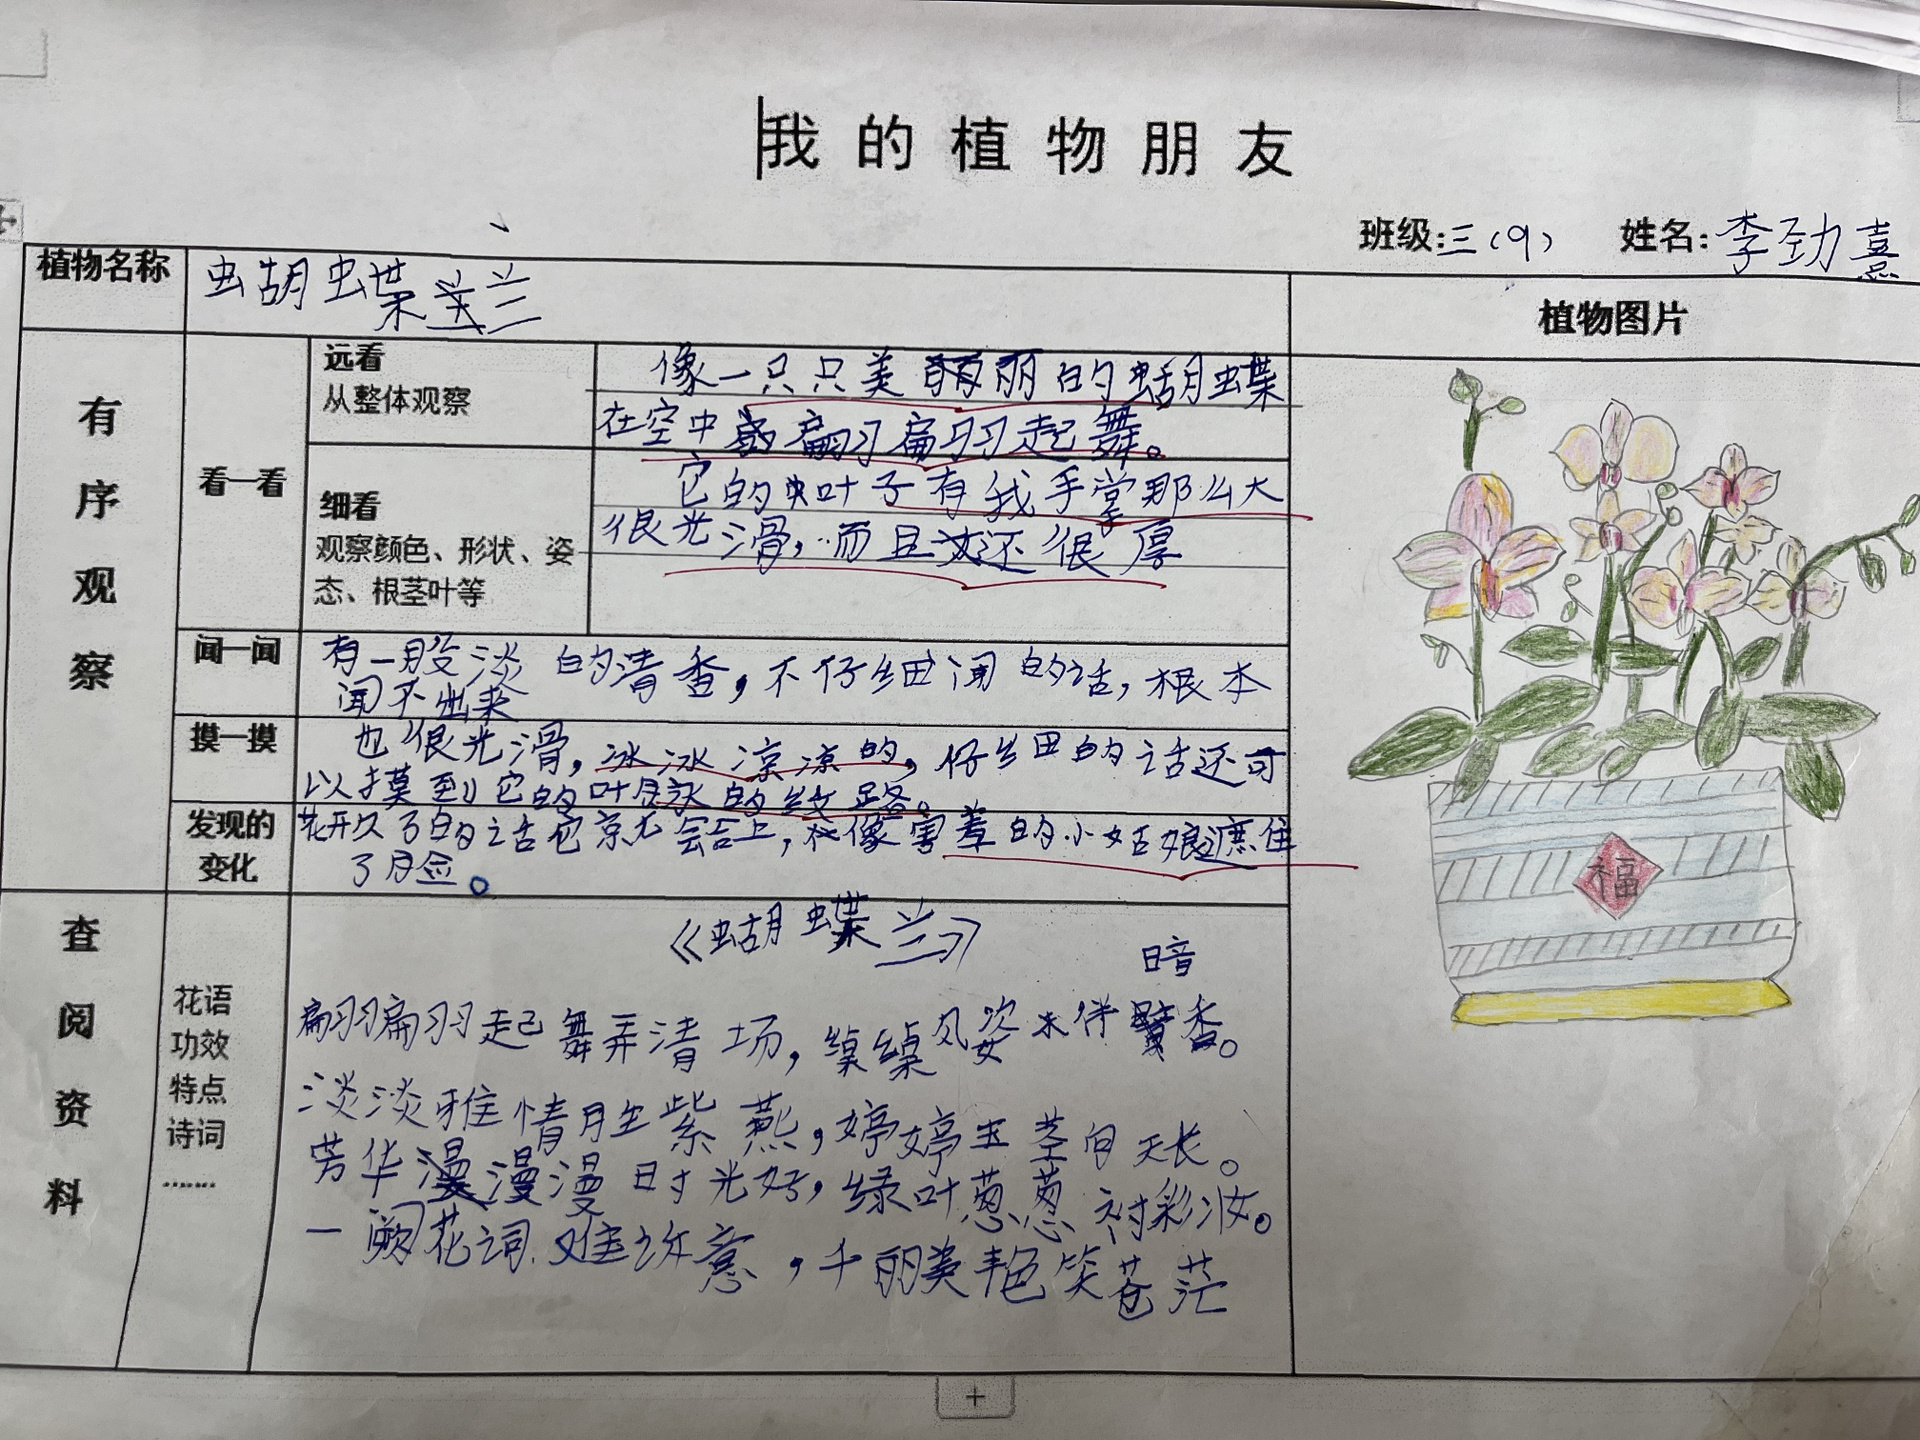 我的植物朋友
班级:三(9) 姓名:李劲熹
植物名称
蝴蝶兰
植物图片
有序观察
看一看
远看
从整体观察
像一只只美丽的蝴蝶
在空中翩翩起舞。
细看
观察颜色、形状、姿
态、根茎叶等
它的叶子有我手掌那么大
很光滑,而且还很厚
闻一闻
有一股淡的清香,不仔细闻的话,根本
闻不出来
摸一摸
也很光滑,冰冰凉凉的,仔细的话还可
以摸到它的叶脉的纹路。
发现的
变化
花开久了的话它就会合上,像害羞的小姑娘遮住
了脸。
查阅资料
花语
功效
特点
诗词
......
《蝴蝶兰》
翩翩起舞弄清场,绰绰风姿来伴暗香。
淡淡雅情胜紫燕,婷婷玉茎向天长。
芳华漫漫时光好,绿叶葱葱衬彩妆。
一阙花词难诉意,千丽美艳笑苍茫
福